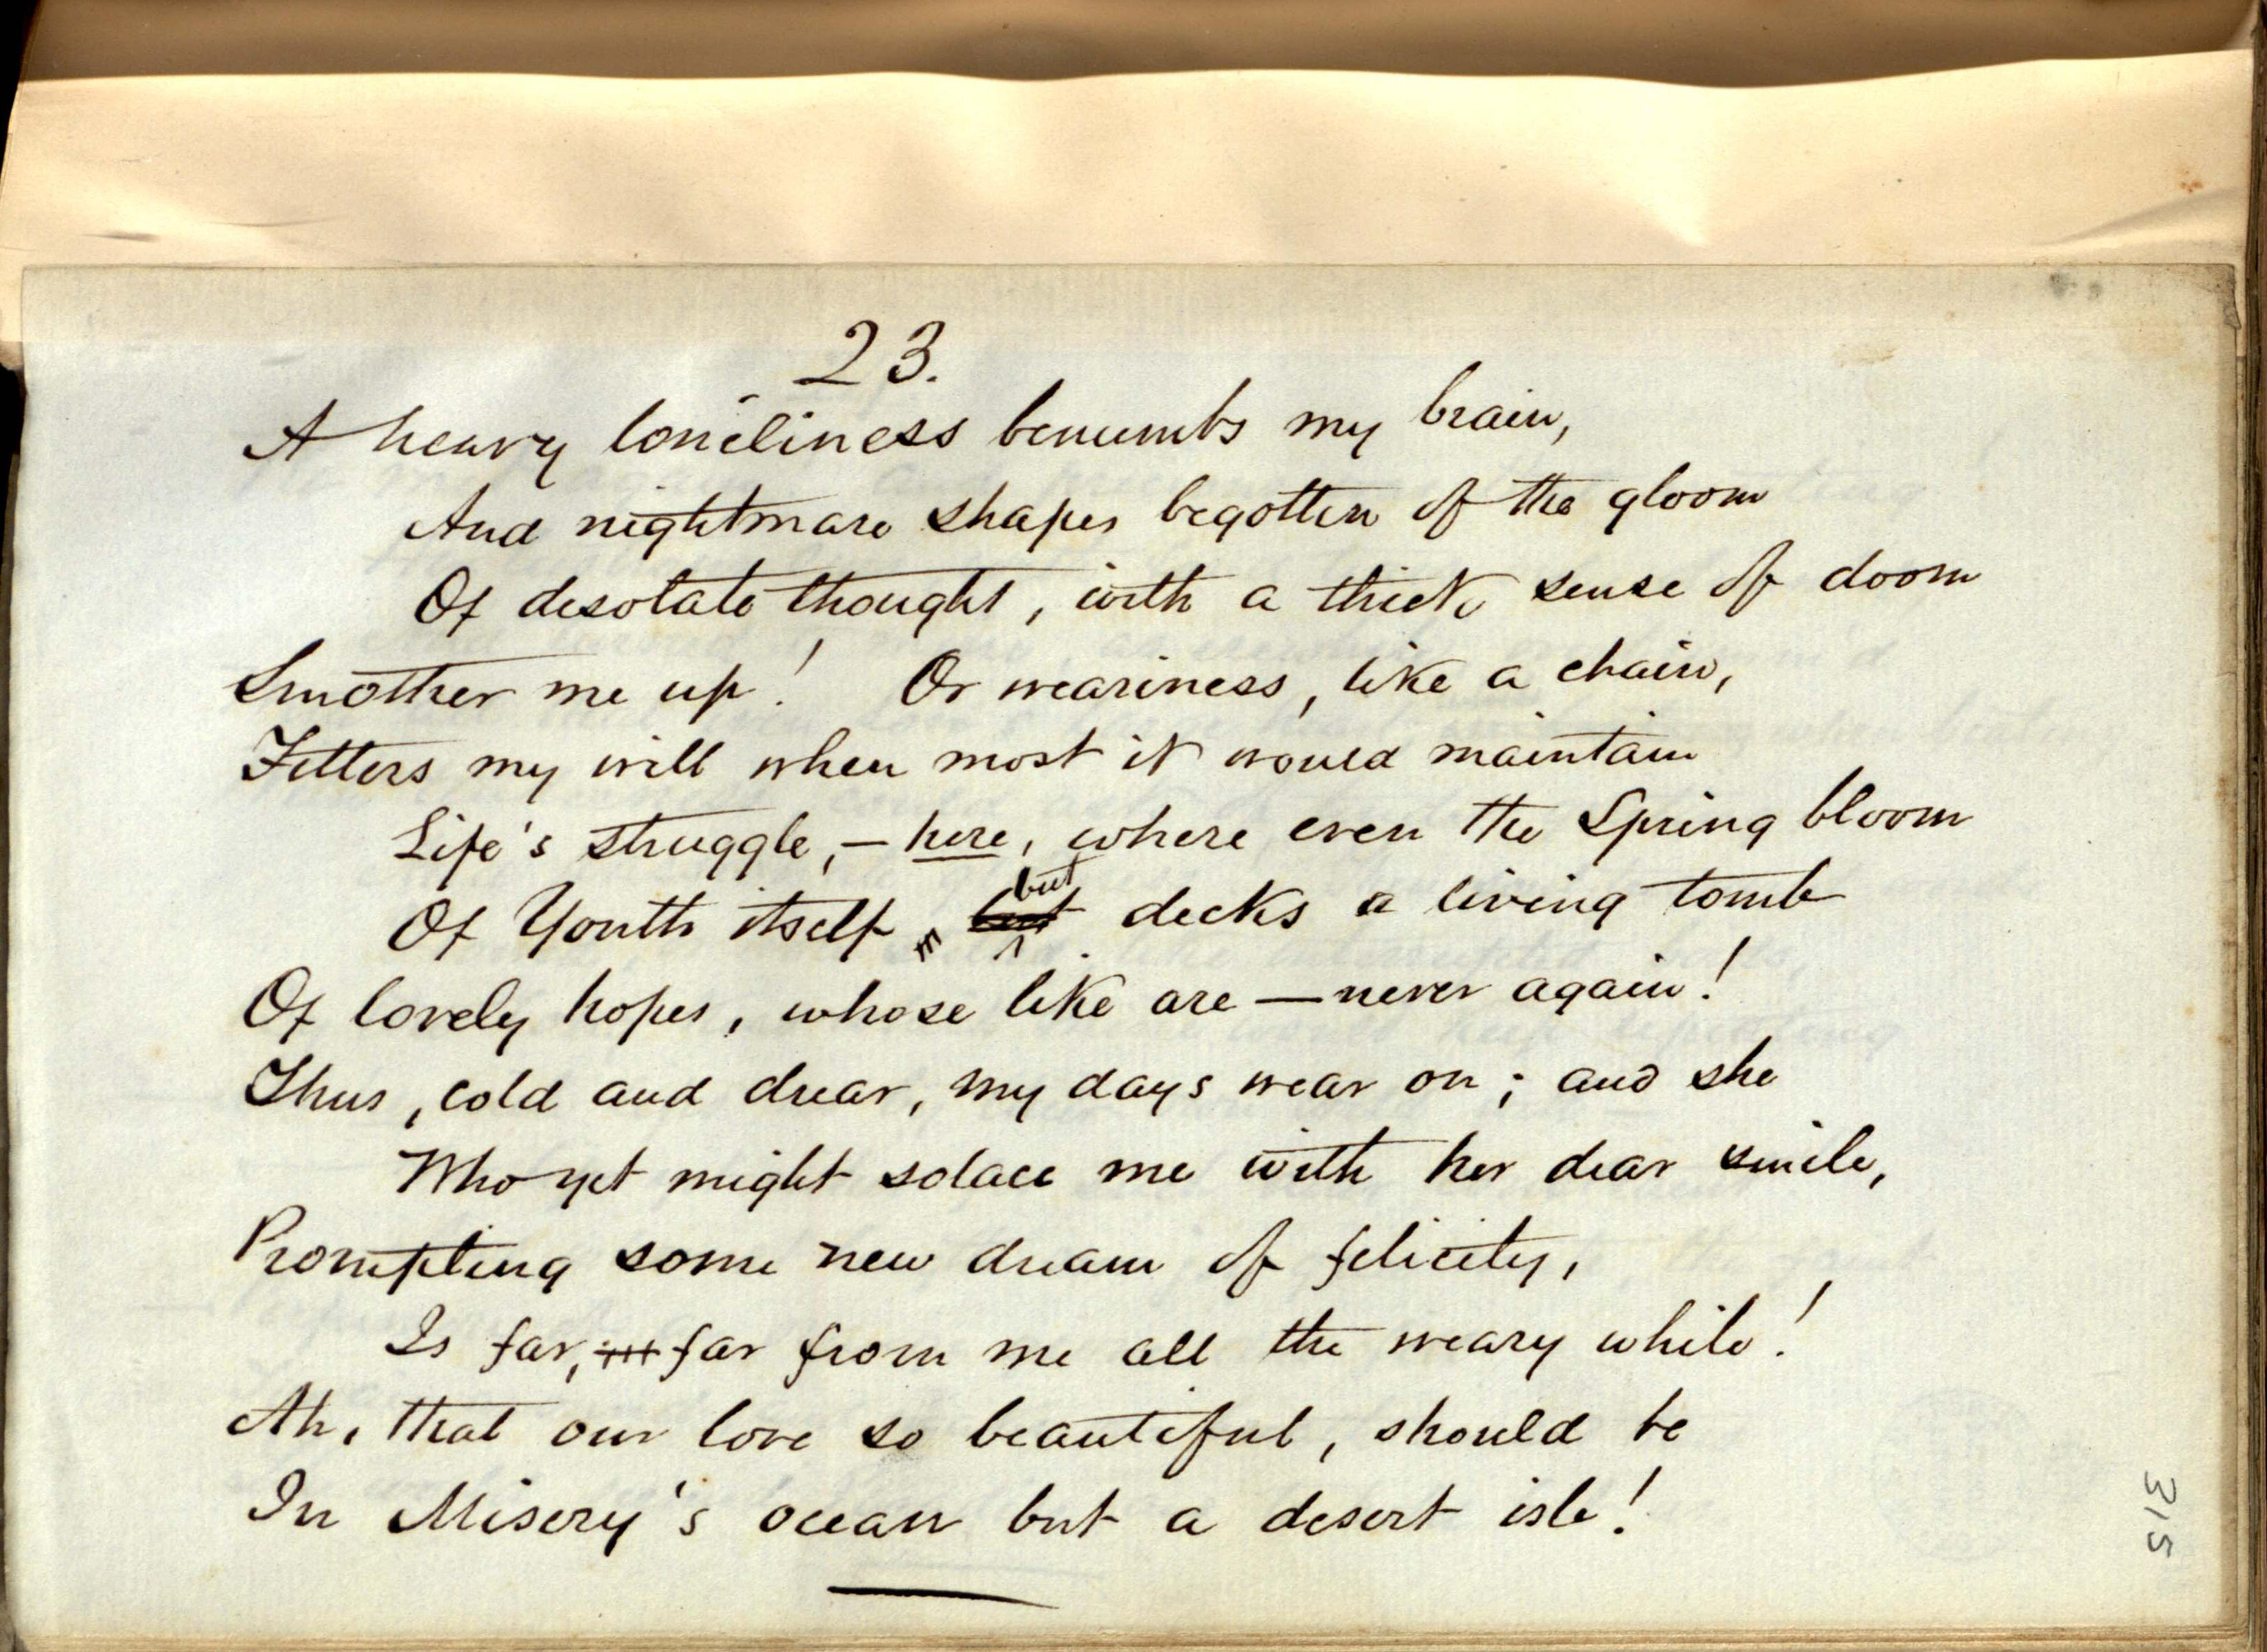 23.
A heavy loneliness benumbs my brain,
And nightmare shapes begotten of the gloom
Of desolate thought, with a thick sense of doom
Smother me up! Or weariness, like a chain,
Fetters my will when most it would maintain
Life's struggle, — here, where even the Spring bloom
Of Youth itself but decks a living tomb
Of lovely hopes, whose like are — never again!
Thus, cold and drear, my days wear on; and she
Who yet might solace me with her dear smile,
Prompting some new dream of felicity,
Is far, far from me all the weary while!
Ah, that our love so beautiful, should be
In Misery's ocean but a desert isle!
315